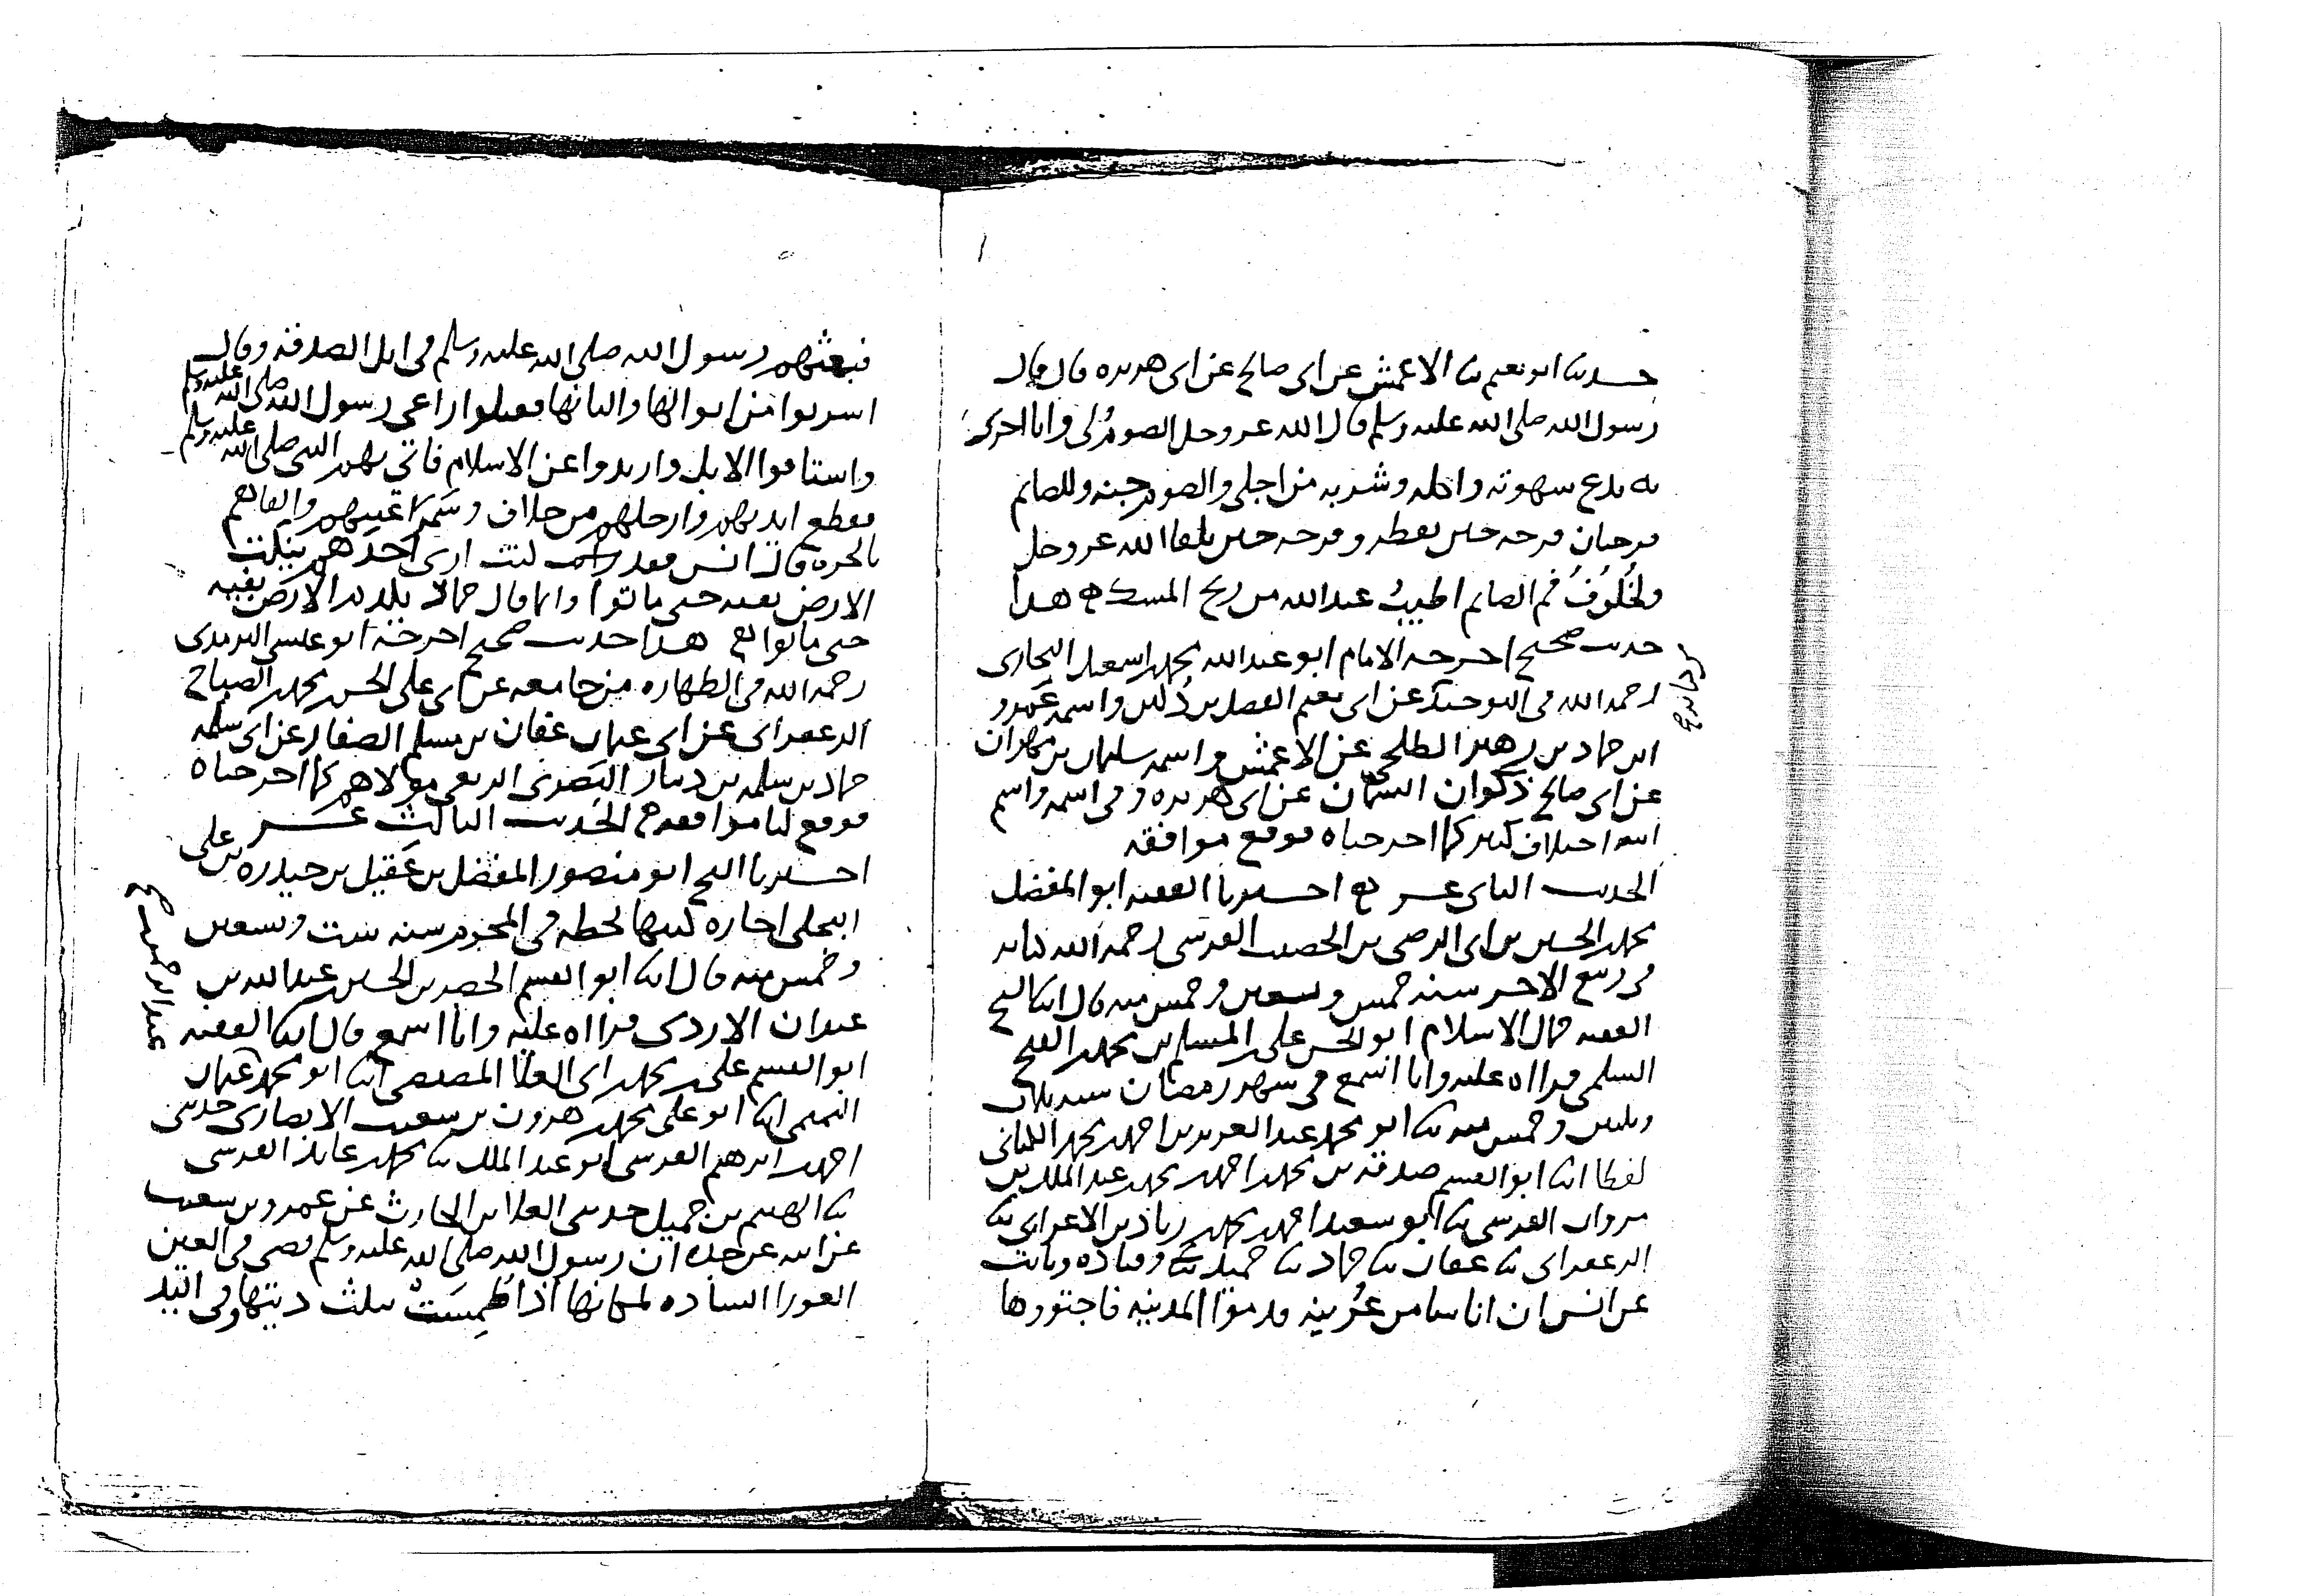 حدثنا ابو نعيم ثنا الاعمش عن ابى صالح عن ابى هريره قال قال
رسول الله صلى الله عليه وسلم قال الله عز وجل الصوم لى وانا اجزى
به يدع شهوته واكله وشربه من اجلى والصوم جنه وللصايم
فرحتان فرحه حين يفطر وفرحه حين يلقا الله عز وجل
ولخلوف فم الصايم اطيب عند الله من ريح المسك هذا
حديث صحيح اخرجه الامام ابو عبد الله محمد بن اسمعيل البخارى
رحمه الله فى التوحيد عن ابى نعيم الفضل بن دكين واسمه عمرو
ابن حماد بن زهير الطلحى عن الاعمش واسمه سليمان بن مهران
عن ابى صالح ذكوان السمان عن ابى هريره وفى اسمه واسم
ابيه اختلاف كثير كما اخرجناه فوقع موافقه
الحديث الثانى عشر اخبرنا الفقيه ابو المفضل
محمد بن الحسين بن ابى الرضى بن الخصيب القرشى رحمه الله كتابه
فى ربيع الاخر سنه خمس وسبعين وخمس ميه قال انبا الشيخ
الفقيه جمال الاسلام ابو الحسن على بن المسلم بن محمد بن الفتح
السلمى قراه عليه وانا اسمع فى شهر رمضان سنه ثلاث
وثلثين وخمس ميه ثنا ابو محمد عبد العزيز بن احمد بن محمد الكتانى
لفظا انبا ابو القسم صدقه بن محمد بن احمد بن محمد بن عبد الملك بن
مروان القرشى ثنا ابو سعيد احمد بن محمد بن زياد بن الاعرابى ثنا
الزعفرانى ثنا عفان ثنا حماد ثنا حميد وقتاده وثابت
عن انس ان اناسا من عرينه قدموا المدينه فاجتووها
فبعثهم رسول الله صلى الله عليه وسلم فى ابل الصدقه وقال
اشربوا من ابوالها والبانها فقتلوا راعى رسول الله صلى الله عليه وسلم
واستاقوا الابل وارتدوا عن الاسلام فاتى بهم النبى صلى الله عليه وسلم
فقطع ايديهم وارجلهم من خلاف وسمر اعينهم والقاهم
بالحره قال انس فقد كنت ارى احدهم ينكت
الارض بفيه حتى ماتوا وانما قال حماد يكدم الارض بفيه
حتى ماتوا هذا حديث صحيح اخرجه ابو عيسى الترمذى
رحمه الله فى الطهاره من جامعه عن ابى على الحسن بن محمد بن الصباح
الزعفرانى عن ابى عثمان عفان بن مسلم الصفار عن ابى سلمه
حماد بن سلمه بن دينار البصرى الربعى مولاهم كما اخرجناه
فوقع لنا موافقه الحديث الثالث عشر
اخبرنا الشيخ ابو منصور المفضل بن عقيل بن حيدره بن على
البجلى اجازه كتبها بخطه فى المحرم سنه ست وسبعين
وخمس ميه قال انبا ابو القسم الخضر بن الحسين بن عبد الله بن
عبدان الازدى قراه عليه وانا اسمع قال انبا الفقيه
ابو القسم على بن محمد بن ابى العلا المصيصى انبا ابو محمد بن عثمان
التميمى انبا ابو على محمد بن هرون بن شعيب الانصارى حدثنى
احمد بن ابرهيم القرشى ابو عبد الملك ثنا محمد بن عايذ القرشى
ثنا الهيثم بن حميد حدثنى العلا بن الحارث عن عمرو بن شعيب
عن ابيه عن جده ان رسول الله صلى الله عليه وسلم قضى فى العين
العورا الساده لمكانها اذا طمست ثلث ديتها وفى اليد
عبد الرحمن صح